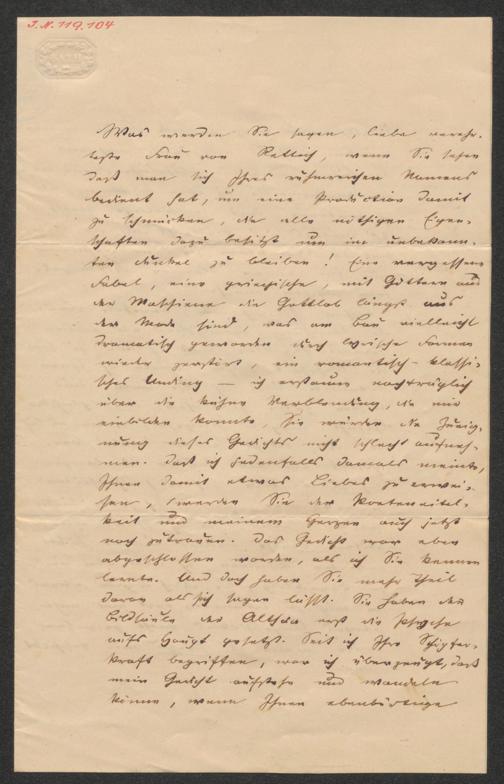 J.N. 119.104
Was werden Sie sagen, liebe verehr-
teste Frau von Rettich, wenn Sie sehen
daß man sich Ihres ruhmreichen Namens
bedient hat, um eine Production damit
zu schmücken, die alle nöthigen Eigen-
schaften dazu besitzt um im unbekann-
ten Dunkel zu bleiben! Eine vergessene
Fabel, eine griechische, mit Göttern aus
der Maschiene die Gottlob längst aus
der Mode sind, was am Bau vielleicht
dramatisch geworden durch lyrische Formen
wieder zerstört, ein romantisch-klassi-
sches Unding — ich erstaune nachträglich
über die kühne Verblendung, die mir
einbilden konnte, Sie würden die Zueig-
nung dieses Gedichts nicht schlecht aufneh-
men. Daß ich jedenfalls damals meinte,
Ihnen damit etwas Liebes zu erwei-
sen, werden Sie der Poeteneitel-
keit und meinem Herzen auch jetzt
noch zutrauen. Das Gedicht war eben
abgeschlossen worden, als ich Sie kennen
lernte. Und doch haben Sie mehr Theil
daran als sich sagen läßt. Sie haben der
Bildsäule der Althäa erst die Psyche
aufs Haupt gesetzt. Seit ich Ihre Schöpfer-
kraft begriffen, war ich überzeugt, daß
mein Gedicht aufstehe und wandeln
könne, wenn Ihnen ebenbürtige